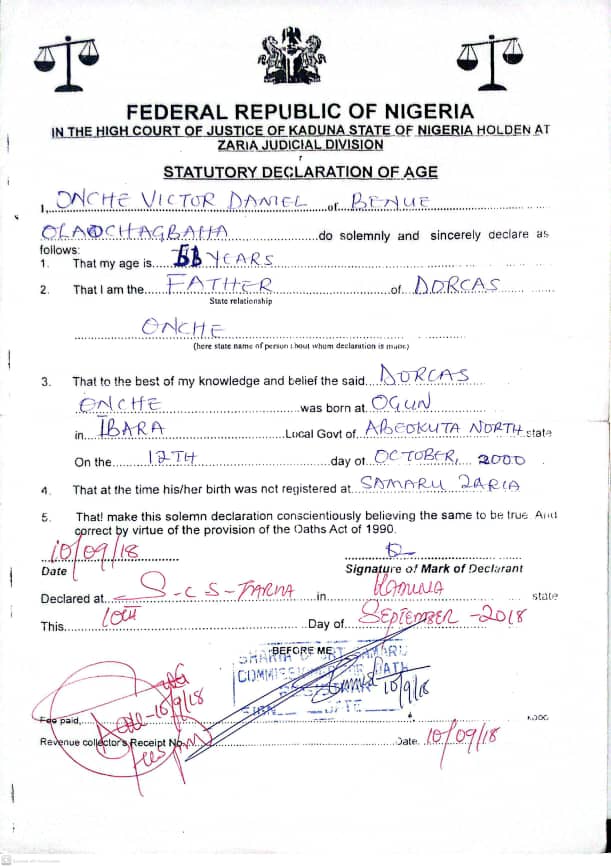 FEDERAL REPUBLIC OF NIGERIA
IN THE HIGH COURT OF JUSTICE OF KADUNA STATE OF NIGERIA HOLDEN AT
ZARIA JUDICIAL DIVISION
STATUTORY DECLARATION OF AGE
I, ONCHE VICTOR DANIEL of BENUE
OLAOCHAGBAHA do solemnly and sincerely declare as
follows:
1. That my age is YEARS
2. That I am the FATHER of DORCAS
State relationship
ONCHE
(here state name of person about whom declaration is made)
3. That to the best of my knowledge and belief the said DORCAS
ONCHE was born at OGUN
in IBARA Local Govt of ABEOKUTA NORTH state
On the 12TH day of OCTOBER, 2000
4. That at the time his/her birth was not registered at SAMARU ZARIA
5. That! make this solemn declaration conscientiously believing the same to be true. And
correct by virtue of the provision of the Oaths Act of 1990.
10/09/18
Date Signature of Mark of Declarant
Declared at S-C S- in KADUNA state
This 10th Day of SEPTEMBER -2018
BEFORE ME
SHARIA COURT SAMARU
COMMISSIONER FOR OATH
10/9/18
SIGN DATE
10/9/18
Fee paid, K
Revenue collector's Receipt No. Date 10/09/18